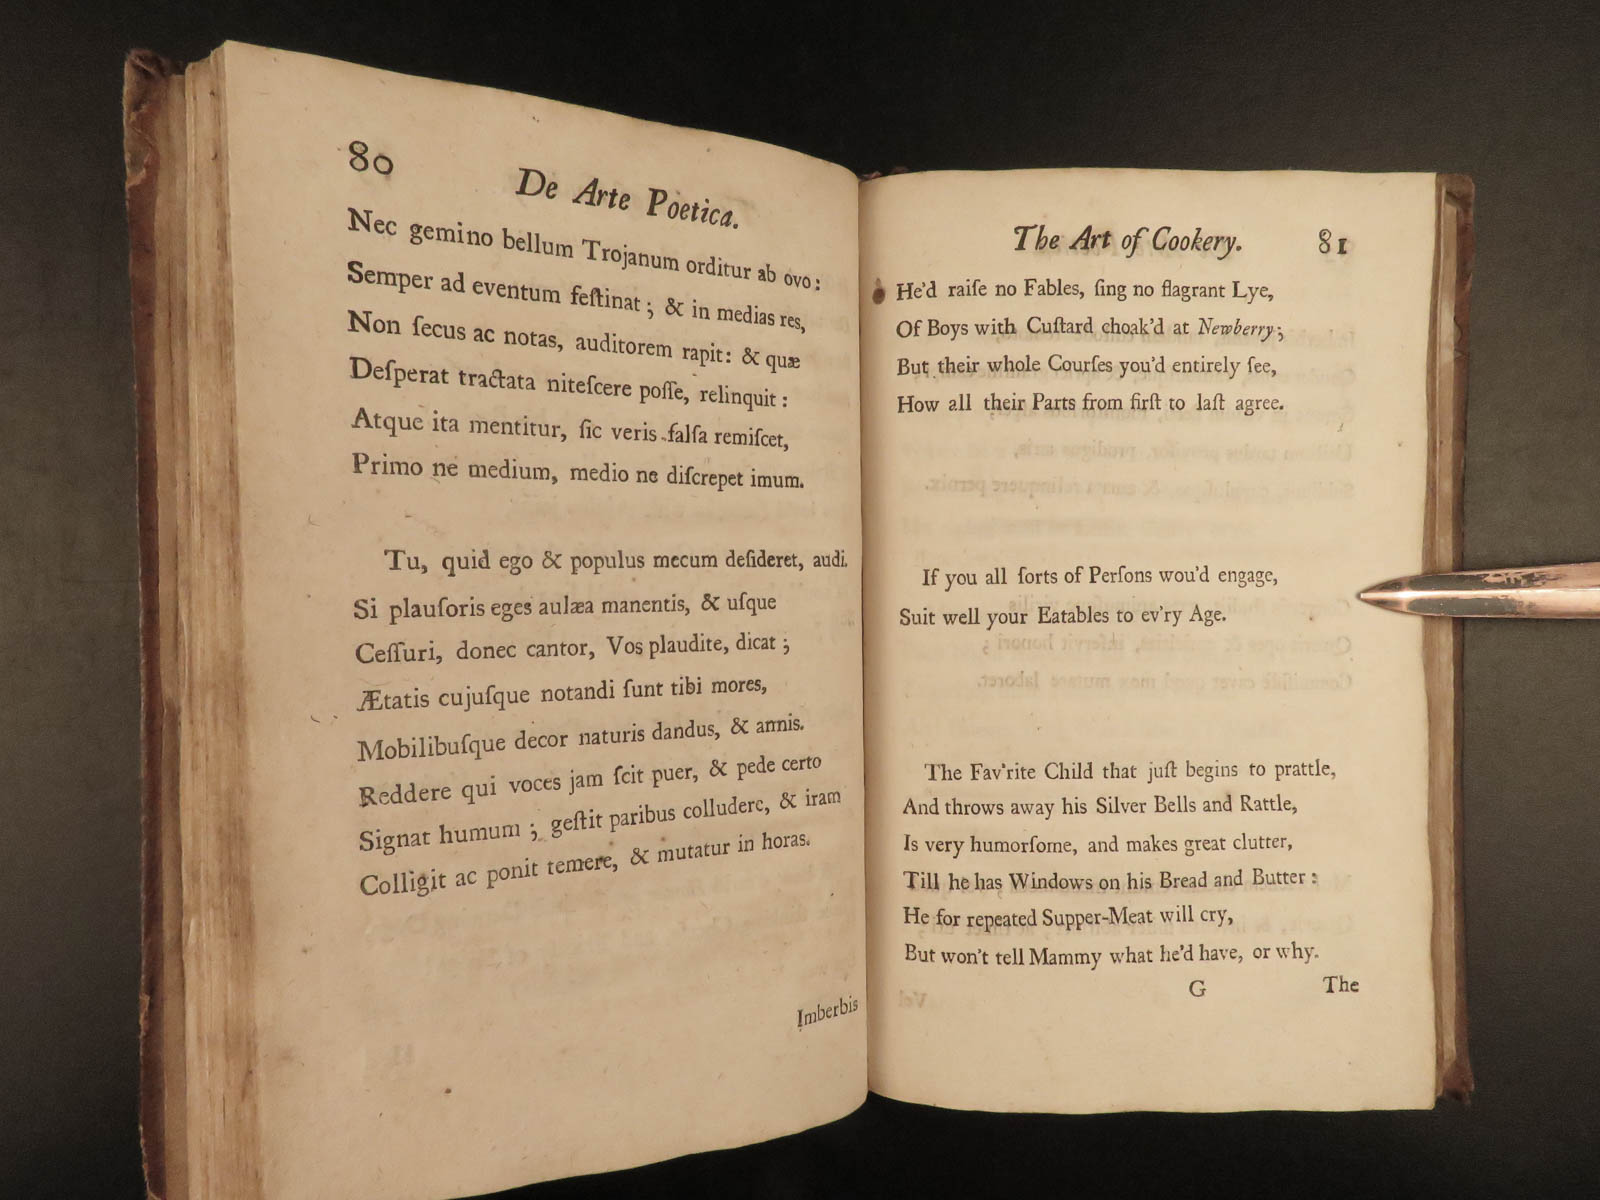 80
De Arte Poetica.
Nec gemino bellum Trojanum orditur ab ovo:
Semper ad eventum feſtinat; & in medias res,
Non ſecus ac notas, auditorem rapit: & quæ
Deſperat tractata niteſcere poſſe, relinquit:
Atque ita mentitur, ſic veris falſa remiſcet,
Primo ne medium, medio ne diſcrepet imum.
Tu, quid ego & populus mecum deſideret, audi.
Si plauſoris eges aulæa manentis, & uſque
Ceſſuri, donec cantor, Vos plaudite, dicat;
Ætatis cujuſque notandi ſunt tibi mores,
Mobilibuſque decor naturis dandus, & annis.
Reddere qui voces jam ſcit puer, & pede certo
Signat humum; geſtit paribus colludere, & iram
Colligit ac ponit temere, & mutatur in horas.
Imberbis
The Art of Cookery. 81
He'd raiſe no Fables, ſing no flagrant Lye,
Of Boys with Cuſtard choak'd at Newberry;
But their whole Courſes you'd entirely ſee,
How all their Parts from firſt to laſt agree.
If you all ſorts of Perſons wou'd engage,
Suit well your Eatables to ev'ry Age.
The Fav'rite Child that juſt begins to prattle,
And throws away his Silver Bells and Rattle,
Is very humorſome, and makes great clutter,
Till he has Windows on his Bread and Butter:
He for repeated Supper-Meat will cry,
But won't tell Mammy what he'd have, or why.
G The